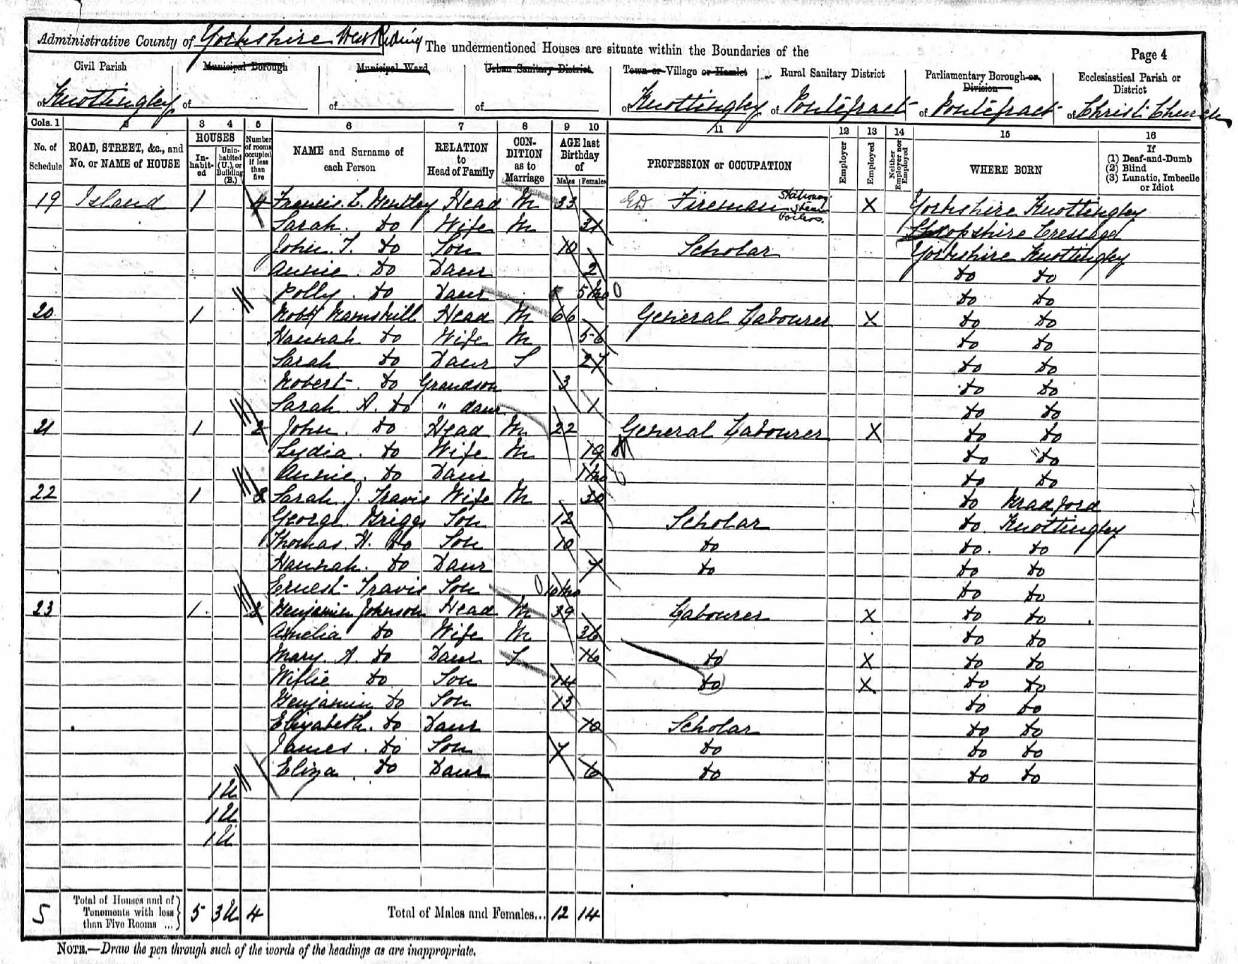 Administrative County of Yorkshire West Riding The undermentioned Houses are situate within the Boundaries of the Page 4
Civil Parish Municipal Borough Municipal Ward Urban Sanitary District Town or Village or Hamlet Rural Sanitary District Parliamentary Borough or Division Ecclesiastical Parish or District
of Knottingley of of of of Knottingley of Pontefract of Pontefract of Christ Church
Cols. 1 2 3 4 5 6 7 8 9 10 11 12 13 14 15 16
No. of Schedule ROAD, STREET, &c., and No. or NAME of HOUSE HOUSES In-habit-ed Unin-habited (U.), or Building (B.) Number of rooms occupied if less than five NAME and Surname of each Person RELATION to Head of Family CON-DITION as to Marriage AGE last Birthday of Males Females PROFESSION or OCCUPATION Employer Employed Neither Employer nor Employed WHERE BORN If (1) Deaf-and-Dumb (2) Blind (3) Lunatic, Imbecile or Idiot
19 Island 1 4 Francis L. Wentley Head M 33 Fireman Stationary Steam Boilers. X Yorkshire Knottingley
Sarah do Wife M 31 Shropshire Cressage
John T. do Son 10 Scholar Yorkshire Knottingley
Annie do Daur 2 do do
Polly do Daur 5 mo do do
20 1 Robt Ramskill Head M 66 General Labourer X do do
Hannah do Wife M 56 do do
Sarah do Daur S 27 do do
Robert do Grandson 3 do do
Sarah A. do " daur 1 do do
21 1 2 John do Head M 22 General Labourer X do do
Lydia do Wife M 19 do do
Annie do Daur 1 mo do do
22 1 2 Sarah J. Travis Wife M 30 do Bradford
George Briggs Son 12 Scholar do Knottingley
Thomas H. do Son 10 do do do
Hannah do Daur 7 do do do
Ernest Travis Son 10 mo do do
23 1 3 Benjamin Johnson Head M 39 Labourer X do do
Amelia do Wife M 36 do do
Mary A. do Daur S 16 do X do do
Willie do Son 14 do X do do
Benjamin do Son 13 do do
Elizabeth do Daur 10 Scholar do do
James do Son 7 do do do
Eliza do Daur 6 do do do
1 U
1 U
1 U
5 Total of Houses and of Tenements with less than Five Rooms ... 5 3 U 4 Total of Males and Females... 12 14
NOTE.—Draw the pen through such of the words of the headings as are inappropriate.